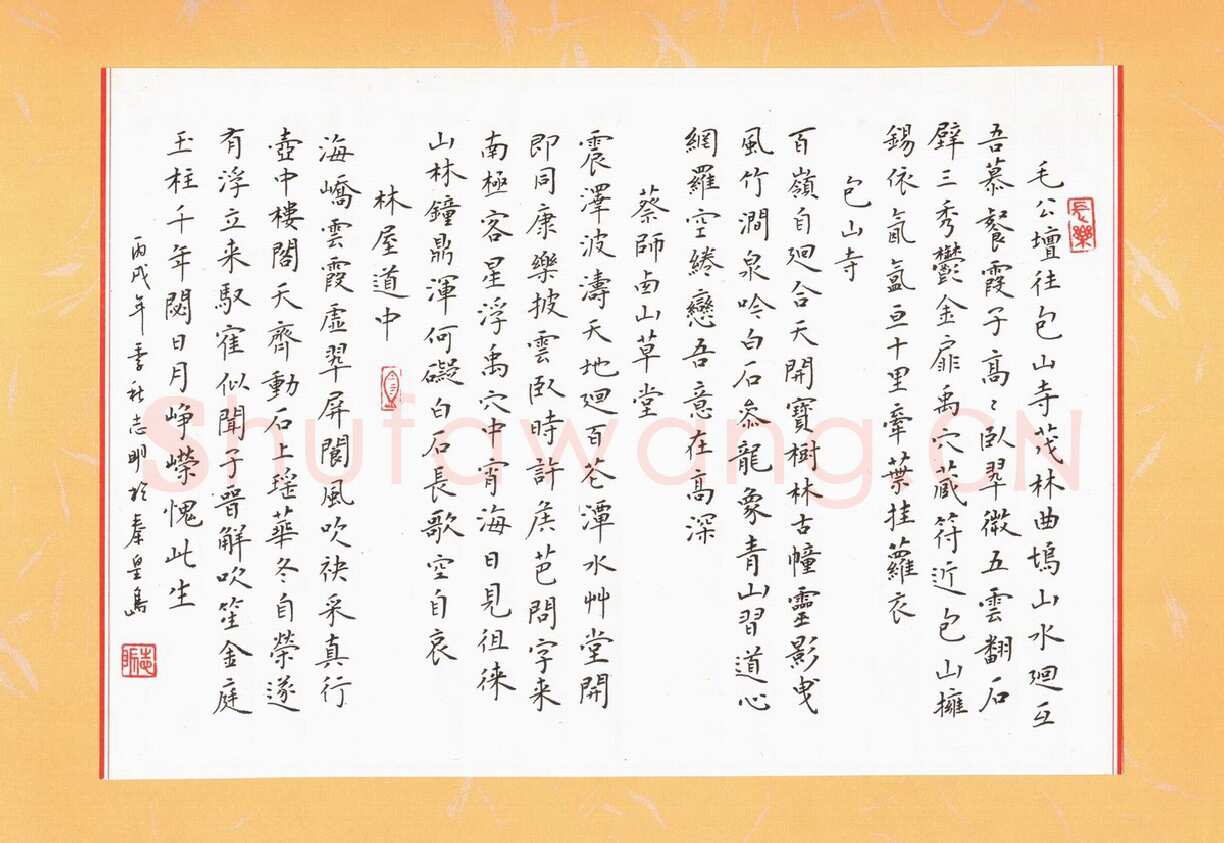 長樂
毛公壇往包山寺茂林曲塢山水迴互
吾慕餐霞子高〻臥翠微五雲翻石
壁三秀鬱金扉禹穴藏符近包山擁
錫依氤氳亙十里牽葉挂蘿衣
包山寺
百嶺自迴合天開寶樹林古幢靈影曳
風竹澗泉吟白石參龍象青山習道心
網羅空綣戀吾意在高深
蔡師西山草堂
震澤波濤天地迴百花潭水艸堂開
即同康樂披雲臥時許侯芭問字来
南極客星浮禹穴中宵海日見徂徠
山林鐘鼎渾何礙白石長歌空自哀
林屋道中
海嶠雲霞虛翠屏閬風吹袂采真行
壺中樓閣天齊動石上瑤華冬自榮遂
有浮立来馭寉似聞子晉解吹笙金庭
玉柱千年閟日月崢嶸愧此生
丙戌年季秋志明於秦皇島
Shufawang.CN